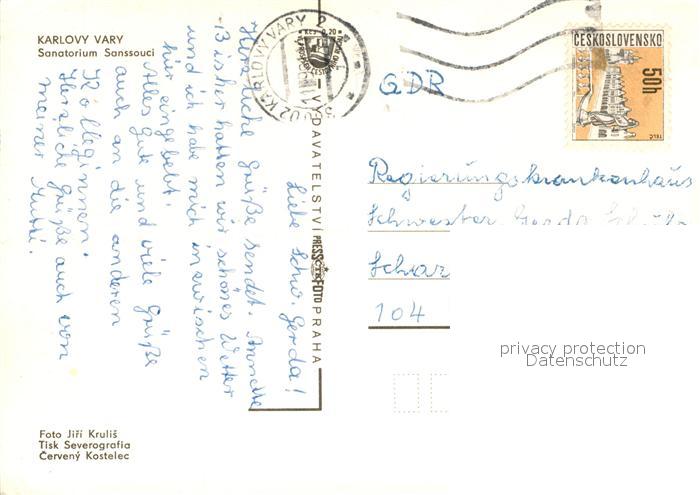 KARLOVY VARY
Sanatorium Sanssouci
Liebe Schw. Gerda!
Herzliche Grüße sendet Annette
Bisher hatten wir schönes Wetter
und ich habe mich inzwischen
hier eingelebt.
Alles gute und viele Grüße
auch an die anderen
Kolleginnen.
Herzliche Grüße auch von
meiner Mutti.
VYDAVATELSTVÍ PRESSFOTO PRAHA
KARLOVY VARY 2
Kčs 0,20
ČESKOSLOVENSKO
50h
TELČ
GDR
Regierungskrankenhaus
Schwester Gerda
Schar
104
privacy protection
Datenschutz
Foto Jiří Kruliš
Tisk Severografia
Červený Kostelec